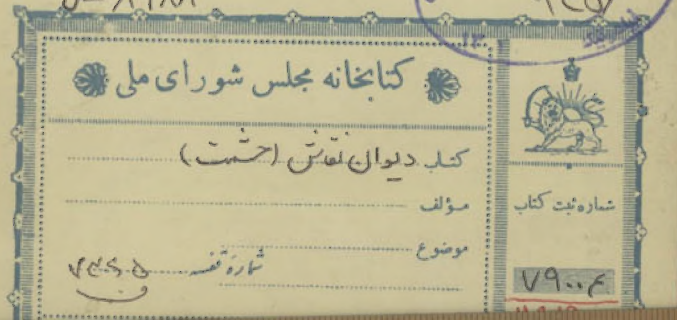 کتابخانه مجلس شورای ملی
کتاب دیوان نقاش (حشمت)
مؤلف
موضوع
شماره قفسه
شماره ثبت کتاب
۷۹۰۰۴